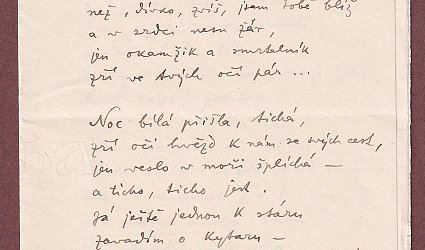 než, dívko, zvíš, jsem tobě blíž
a v srdci nesu žár,
jen okamžik a smrtelník
zří ve tvých očí pár ...
Noc bílá přišla, tichá,
zří oči hvězd k nám se svých cest,
jen veslo v moři šplíchá –
a ticho, ticho jest.
Já ještě jednou k stáru
zavadím o kytaru –